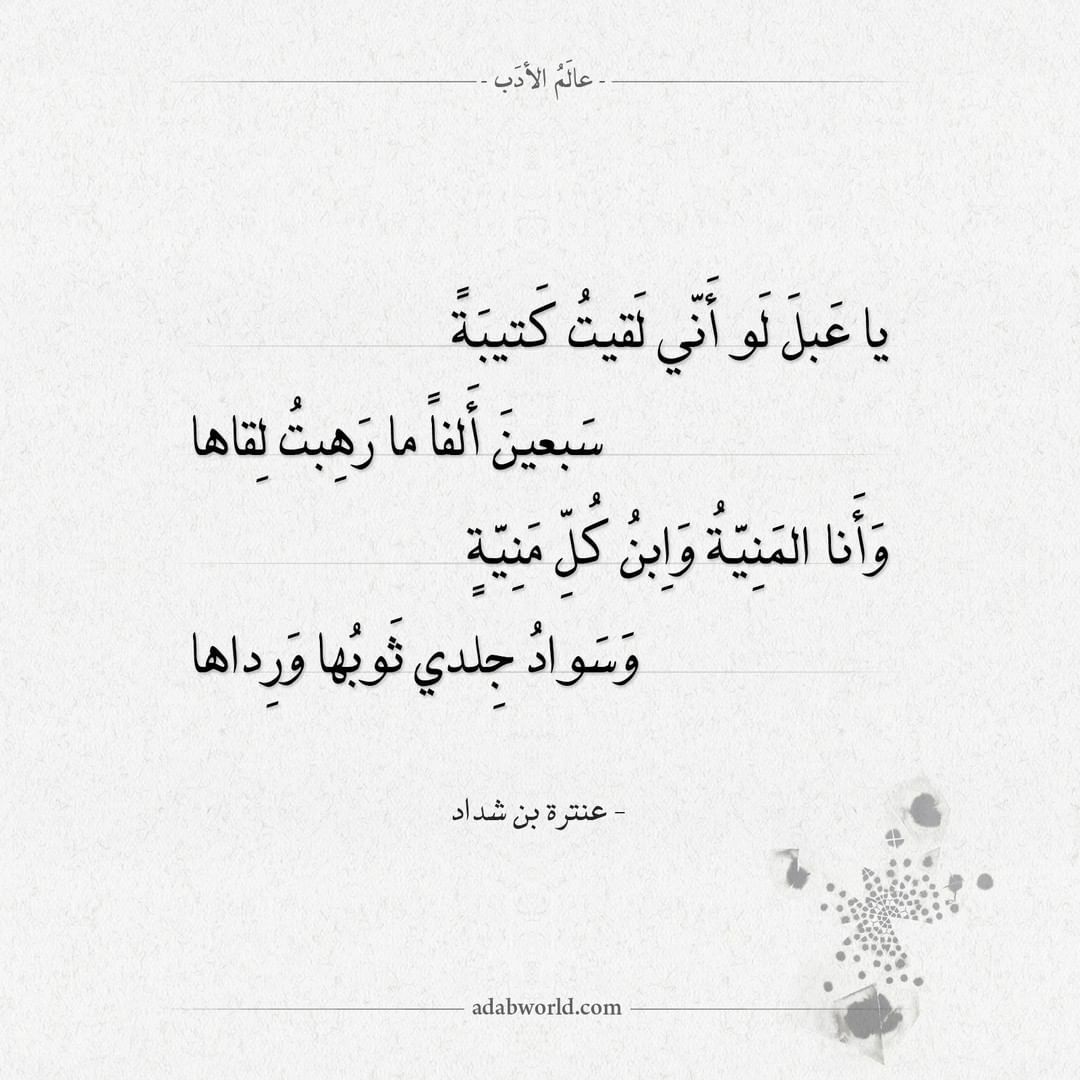 - عالَمُ الأدَب -
يا عَبلَ لَو أَنّي لَقيتُ كَتيبَةً
سَبعينَ أَلفاً ما رَهِبتُ لِقاها
وَأَنا المَنِيّةُ وَاِبنُ كُلِّ مَنِيّةٍ
وَسَوادُ جِلدي ثَوبُها وَرِداها
- عنترة بن شداد
adabworld.com